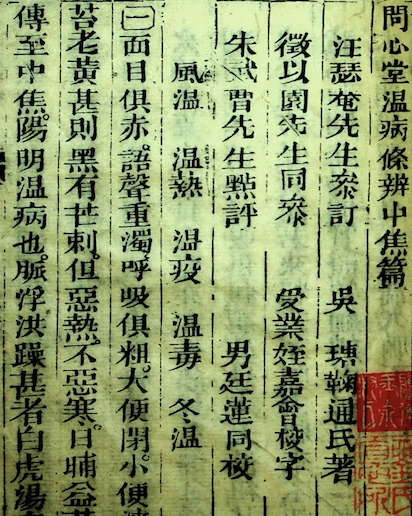 問心堂温病條辨中焦篇
汪瑟菴先生叅訂 吳瑭鞠通氏著
徵以園先生同叅 受業姪嘉會校字
朱武曹先生點評 男廷蓮同校
風温 温熱 温疫 温毒 冬温
㊀面目俱赤。語聲重濁。呼吸俱粗。大便閉。小便澁
苔老黃。甚則黑有芒刺。但惡熱。不惡寒。日晡益甚
傳至中焦。陽明温病也。脈浮洪躁甚者。白虎湯